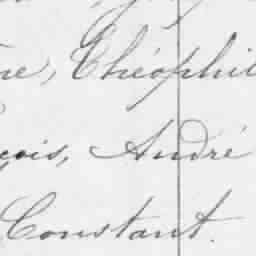 ne, Théophil
çois, André
Constant.